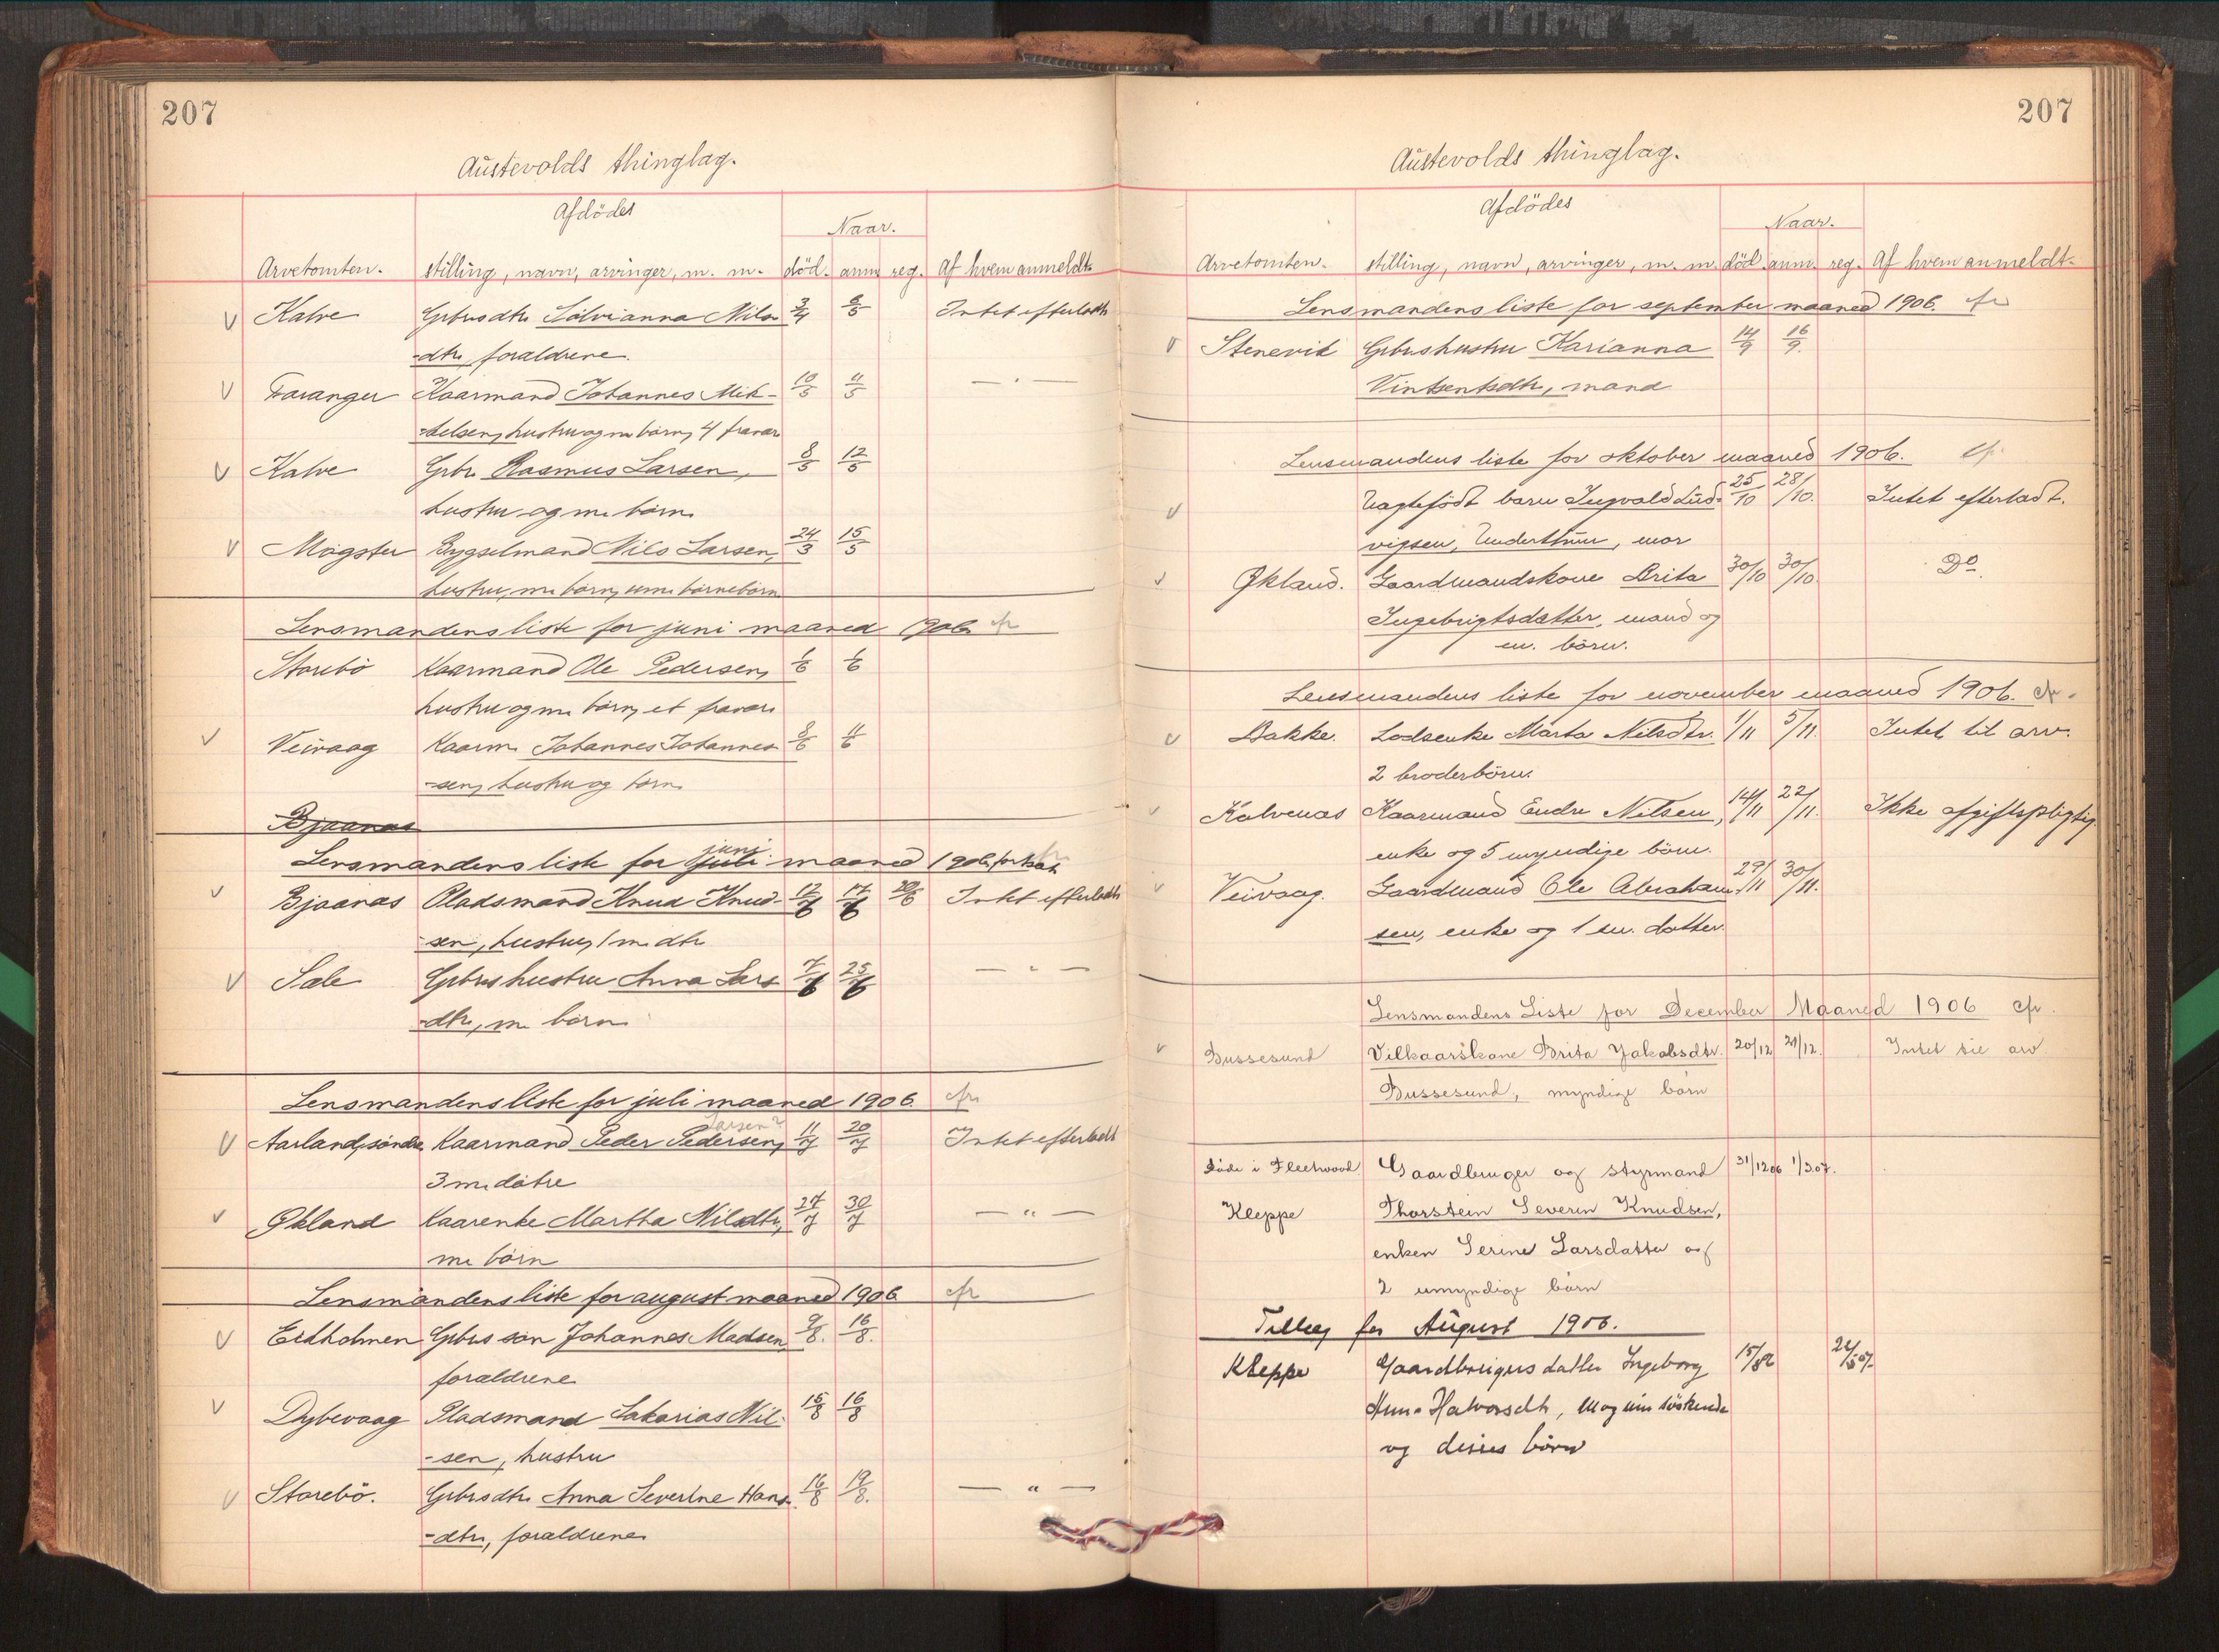 207
Austevolds thinglag.
Afdödes
Naar.
Arvetomten. stilling, navn, arvinger, m. m. död. anm. reg. Af hvem anmeldt.
V Kalve Grbrsdtr. Solvianna Nils- 3/4 6/5 Intet efterladt
-dtr, forældrene.
V Faranger Kaarmand Johannes Mik- 10/5 11/5 — " —
-kelsen, hustru og m. börn, 4 fravær.
V Kalve Grbr. Rasmus Larsen, 8/5 12/5
hustru og m. börn
V Mögster Bygselmand Nils Larsen, 24/3 15/5
hustru, m. börn, um. börnebörn
Lensmandens liste for juni maaned 1906. cfr
Storebö Kaarmand Ole Pedersen, 1/6 1/6
hustru og m. börn, et fravær.
V Veivaag Kaarm. Johannes Johannes- 8/6 11/6
-sen, hustru og börn
Bjaanæs
Lensmandens liste for juli juni maaned 1906, fortsat
V Bjaanæs Pladsmand Knud Knud- 12/6 17/6 20/6 Intet efterladt
-sen, hustru, 1 m. dtr
V Sale Grbrs hustru Anna Lars- 7/6 25/6 — " —
-dtr, m. börn
Lensmandens liste for juli maaned 1906. cfr.
V Aarland, söndre Kaarmand Peder Pedersen, Larsen? 11/7 20/7 Intet efterladt
3 m. döttre
V Økland Kaarenke Martha Nilsdtr, 27/7 30/7 — " —
m. börn
Lensmandens liste for august maaned 1906 cfr
V Eidholmen Grbrs sön Johannes Madsen 9/8. 16/8.
forældrene
V Dybevaag Pladsmand Sakarias Nil- 15/8 16/8
-sen, hustru
V Storebö. Grbrsdtr. Anna Severine Hans- 16/8 19/8. — " —
-dtr, forældrene
207
Austevolds thinglag.
Afdödes
Naar.
Arvetomten. stilling, navn, arvinger, m. m. död. anm. reg. Af hvem anmeldt.
Lensmandens liste for september maaned 1906. cfr
V Stenevik Grbrs hustru Karianna 14/9 16/9.
Vintsentsdtr, mand
Lensmandens liste for oktober maaned 1906. cfr.
V Uægtefödt barn Ingvald Lud- 25/10 28/10. Intet efterladt.
vigsen, mor
V Økland. Gaardmandskone Brita 30/10 30/10. Do
Ingebrigtsdatter, mand og
m. börn.
Lensmandens liste for november maaned 1906. cfr.
V Bakke. Lodsenke Marta Nilsdtr. 1/11 5/11. Intet til arv.
2 broderbörn.
V Kalvenæs Kaarmand Endre Nilsen, 14/11 22/11. Ikke afgiftspligtig.
enke og 5 myndige börn.
V Veivaag. Gaardmand Ole Abraham- 29/11 30/11.
sen, enke og 1 m. datter.
Lensmandens Liste for December Maaned 1906 cfr.
V Bussesund Vilkaarskone Brita Jakobsdtr. 20/12 21/12. Intet til arv
Bussesund, myndige börn
döde i Fleetwood Gaardbruger og styrmand 31/12 06 1/3 07.
Kleppe Thorstein Severin Knudsen,
enken Serine Larsdatter og
2 umyndige börn
Tillæg for August 1906.
Kleppe Gaardbrugers datter Ingeborg 15/8 06 24/5 07.
Anna Halvorsdtr, m og um söskende
og disses börn